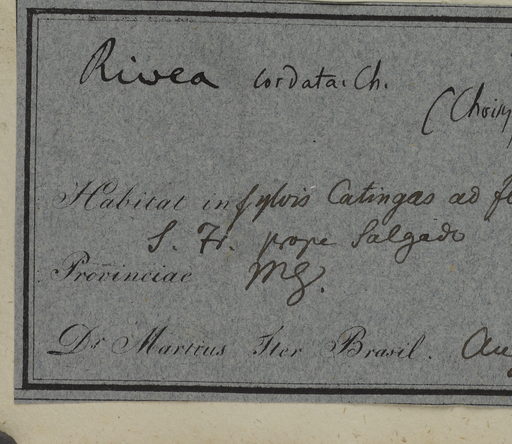 Rivea cordata. Ch.
(Choisy
Habitat in sylvis Catingas ad fl
S. Fr. prope Salgado
Provinciae MG.
Dr. Martius Iter Brasil. Aug